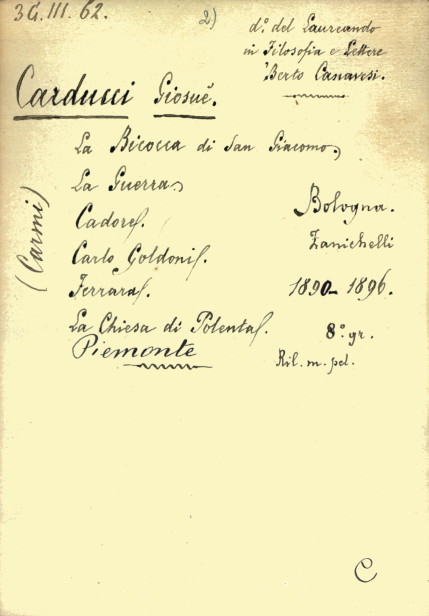 3G.III.62.
2)
d.º del Laureando
in Filosofia e Lettere
Berto Canavesi.
Carducci Giosuè.
(Carmi)
La Bicocca di San Giacomo.
La Guerra.
Cadore.
Carlo Goldoni.
Ferrara.
La Chiesa di Polenta.
Piemonte
Bologna.
Zanichelli
1890-1896.
8.º gr.
Ril. m. pel.
C